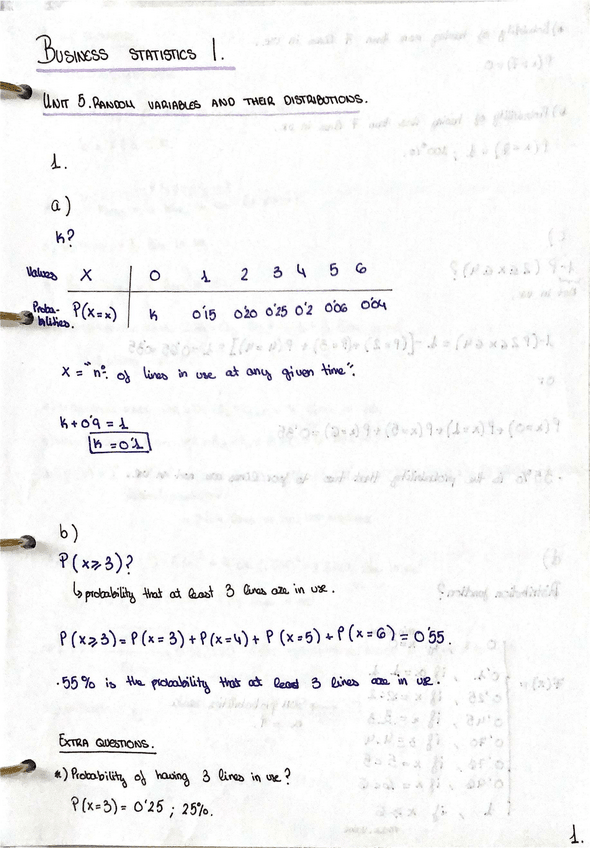 BUSINESS STATISTICS 1.
UNIT 5. RANDOM VARIABLES AND THEIR DISTRIBUTIONS.
1.
a)
K?
Values X 0 1 2 3 4 5 6
Proba-bilities. P(X=x) K 0'15 0'20 0'25 0'2 0'06 0'04
X = "nº of lines in use at any given time".
K+0'9=1
K=0'1
b)
P(x⩾3)?
↳ probability that at least 3 lines are in use.
P(x⩾3)= P(x=3) + P(x=4) + P(x=5) + P(x=6) = 0'55.
·55% is the probability that at least 3 lines are in use.
EXTRA QUESTIONS.
*) Probability of having 3 lines in use?
P(x=3) = 0'25 ; 25%.
1.